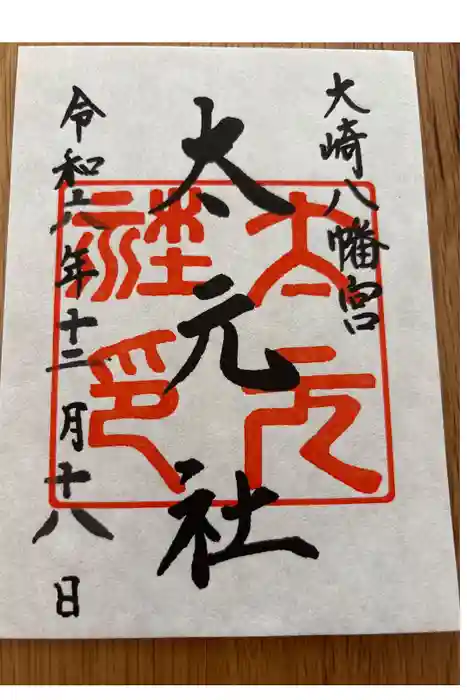 大崎八幡宮
太元社
令和六年十二月十八日
太元
社印